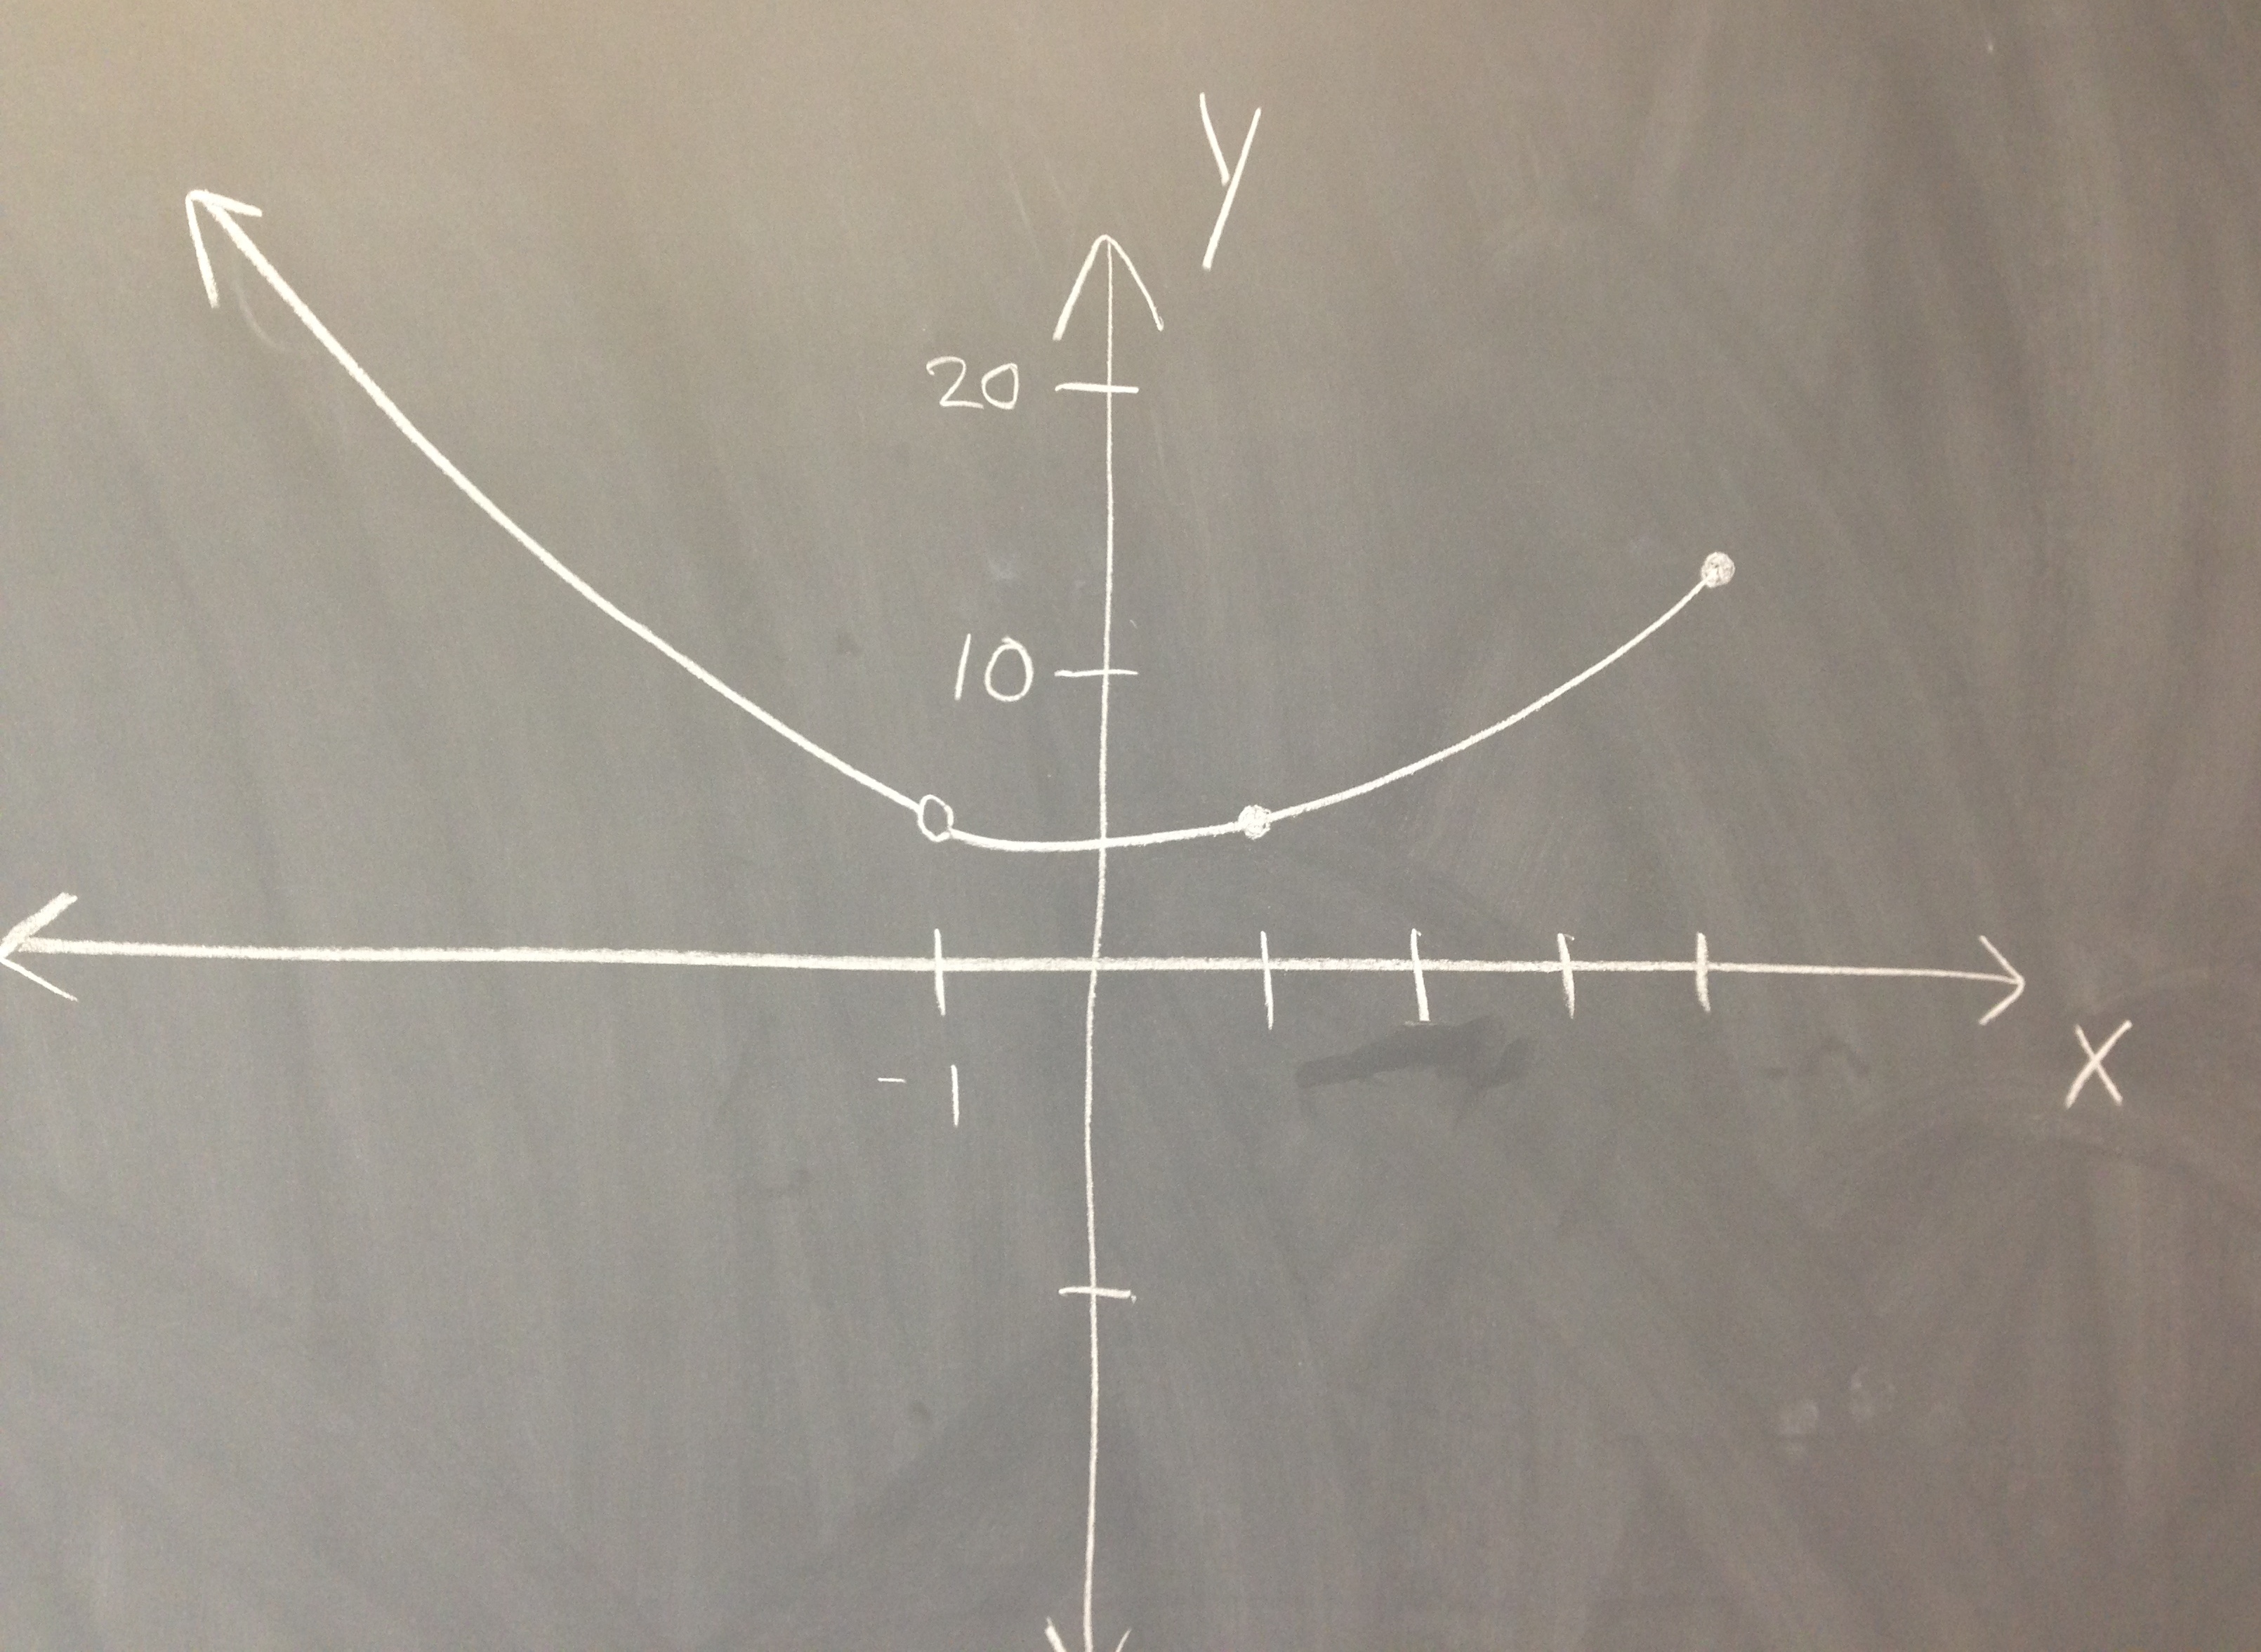 Y
20
10
-1
X